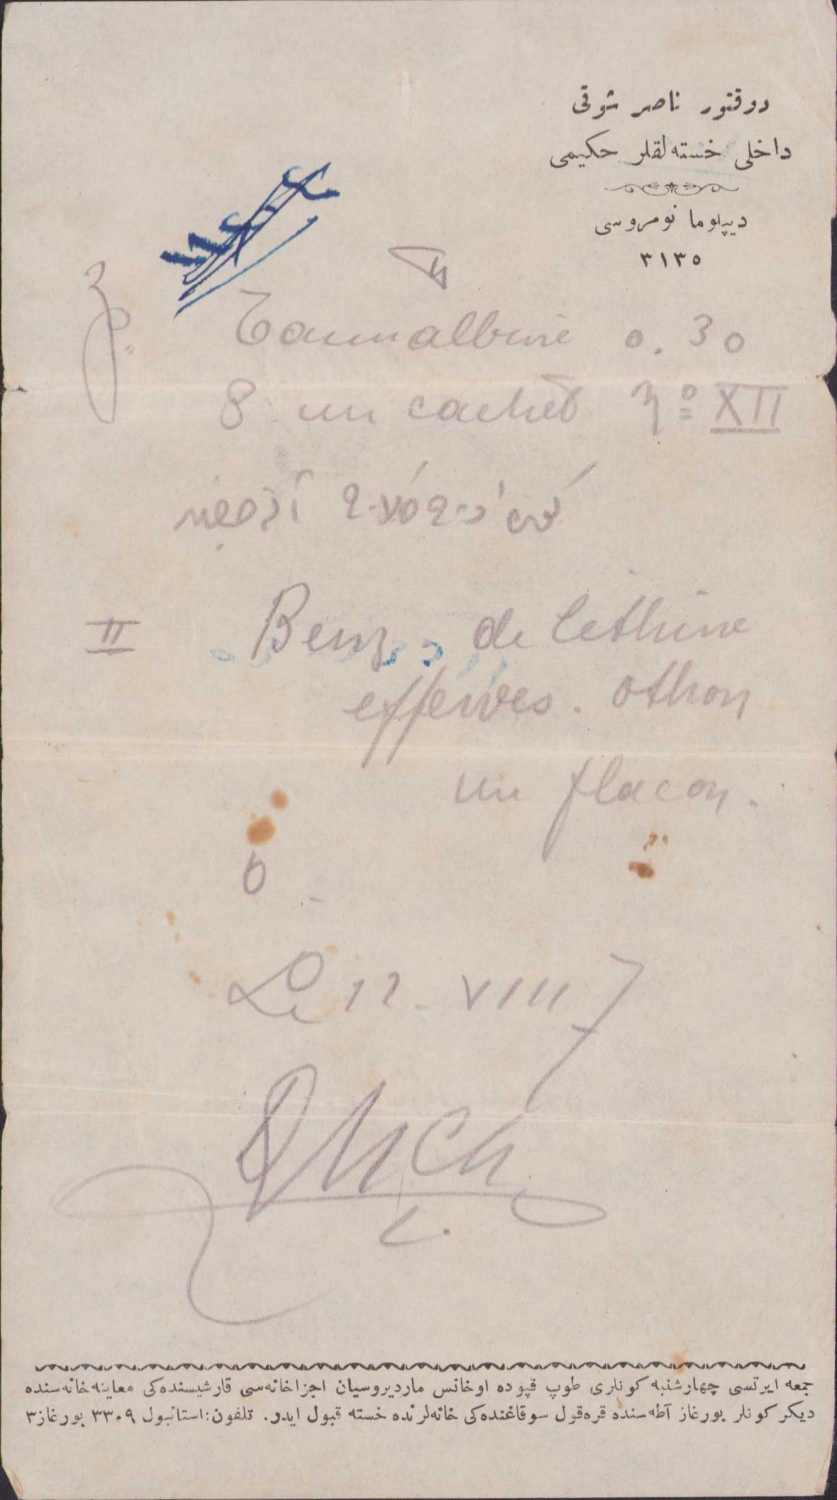 دوقتور ناصر شوقی
داخلی خسته‌لقلر حكیمی
دیپلوما نومروسی
٣١٣٥
Tannalbine 0.30
un cachet No XII
II Benz. de lithine
efferves. othon
un flacon.
Le 12-VIII
جمعه ایرتسی چهارشنبه كونلری طوپ قپوده اوخانس ماردیروسیان اجزاخانه‌سی قارشیسنده‌كی معاینه‌خانه‌سنده
دیكر كونلر بورغاز آطه‌سنده قره‌قول سوقاغنده‌كی خانه‌لرنده خسته قبول ایدر. تلفون: استانبول ٣٣٠٩ بورغاز٣